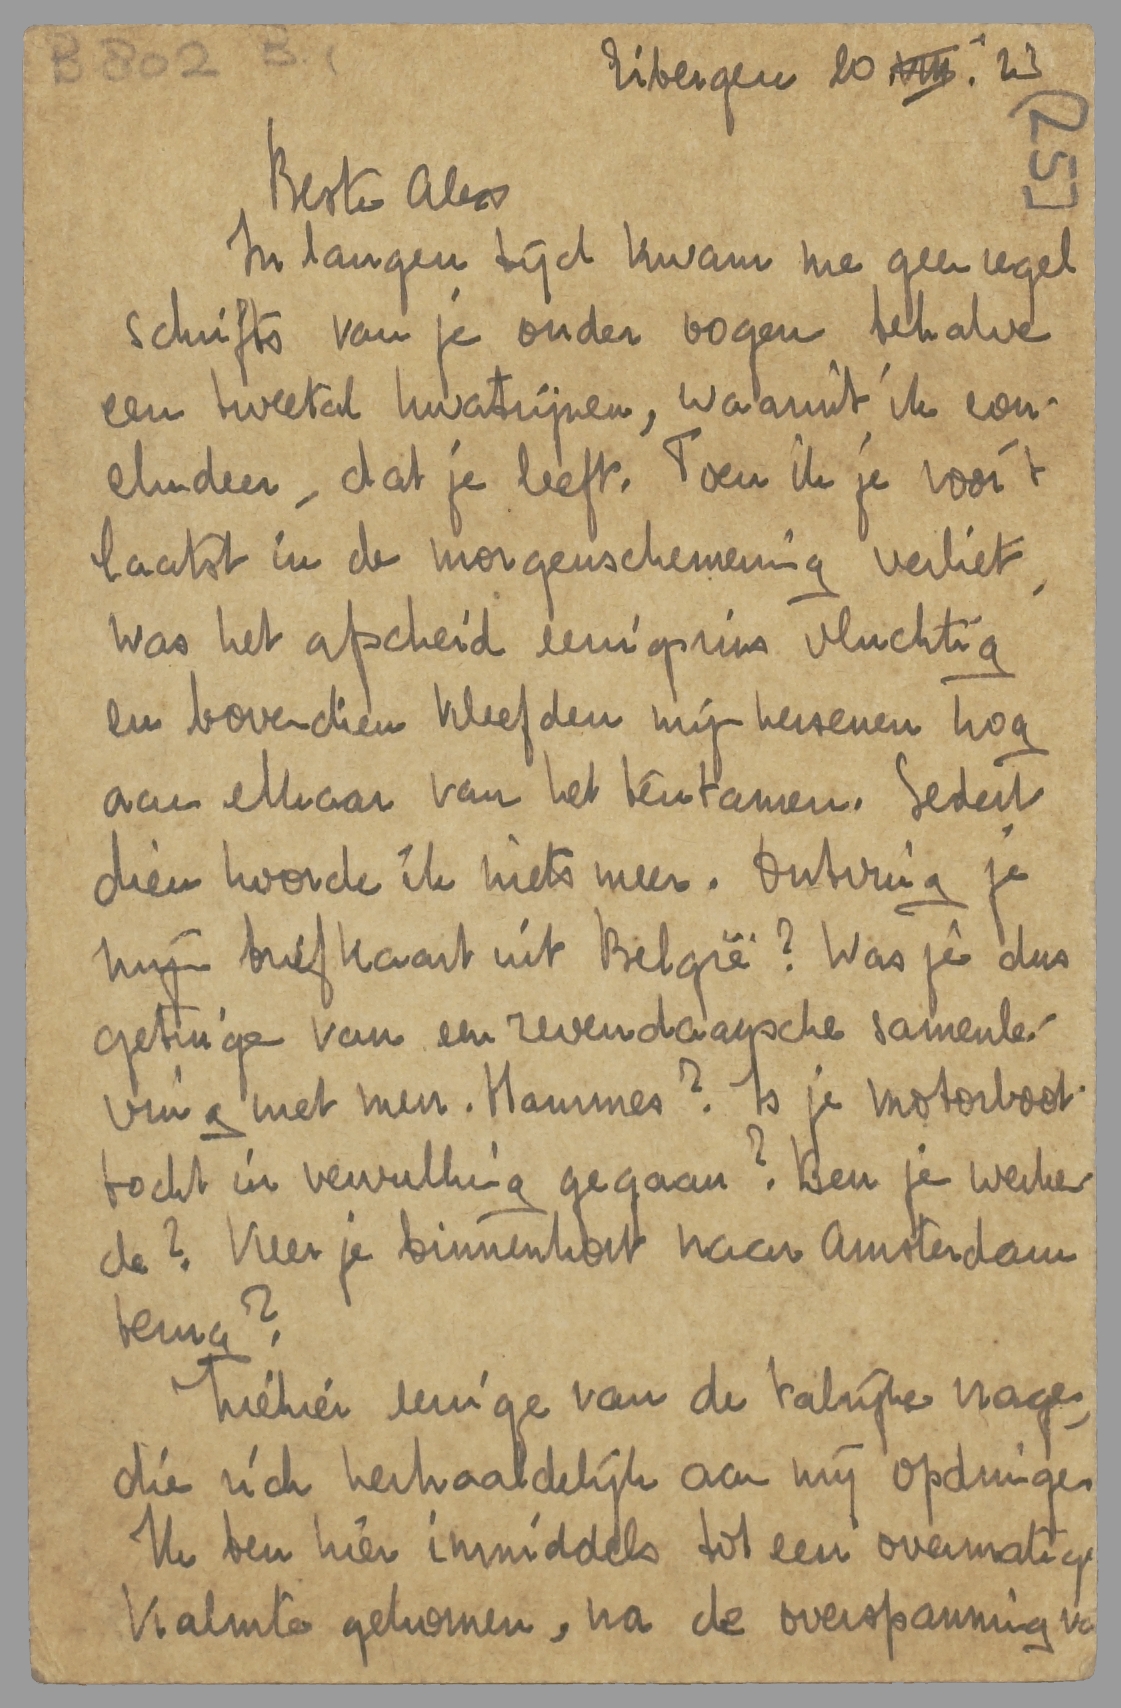 B 802 B.
Eibergen 20 VIII. '23
(25)
Beste Alex
In langen tijd kwam me geen regel
schrifts van je onder oogen behalve
een tweetal kwatrijnen, waaruit ik con-
cludeer, dat je leeft. Toen ik je voor 't
laatst in de morgenschemering verliet,
was het afscheid eenigszins vluchtig
en bovendien kleefden mijn hersenen nog
aan elkaar van het tentamen. Sedert
dien hoorde ik niets meer. Ontving je
mijn briefkaart uit België? Was je dus
getuige van een zevendaagsche samenle-
ving met mevr. Hammes? Is je motorboot-
tocht in vervulling gegaan? Ben je werken-
de? Keer je binnenkort naar Amsterdam
terug?
Ziehier eenige van de talrijke vragen,
die zich herhaaldelijk aan mij opdringen
Ik ben hier inmiddels tot een overmatige
kalmte gekomen, na de overspanning va